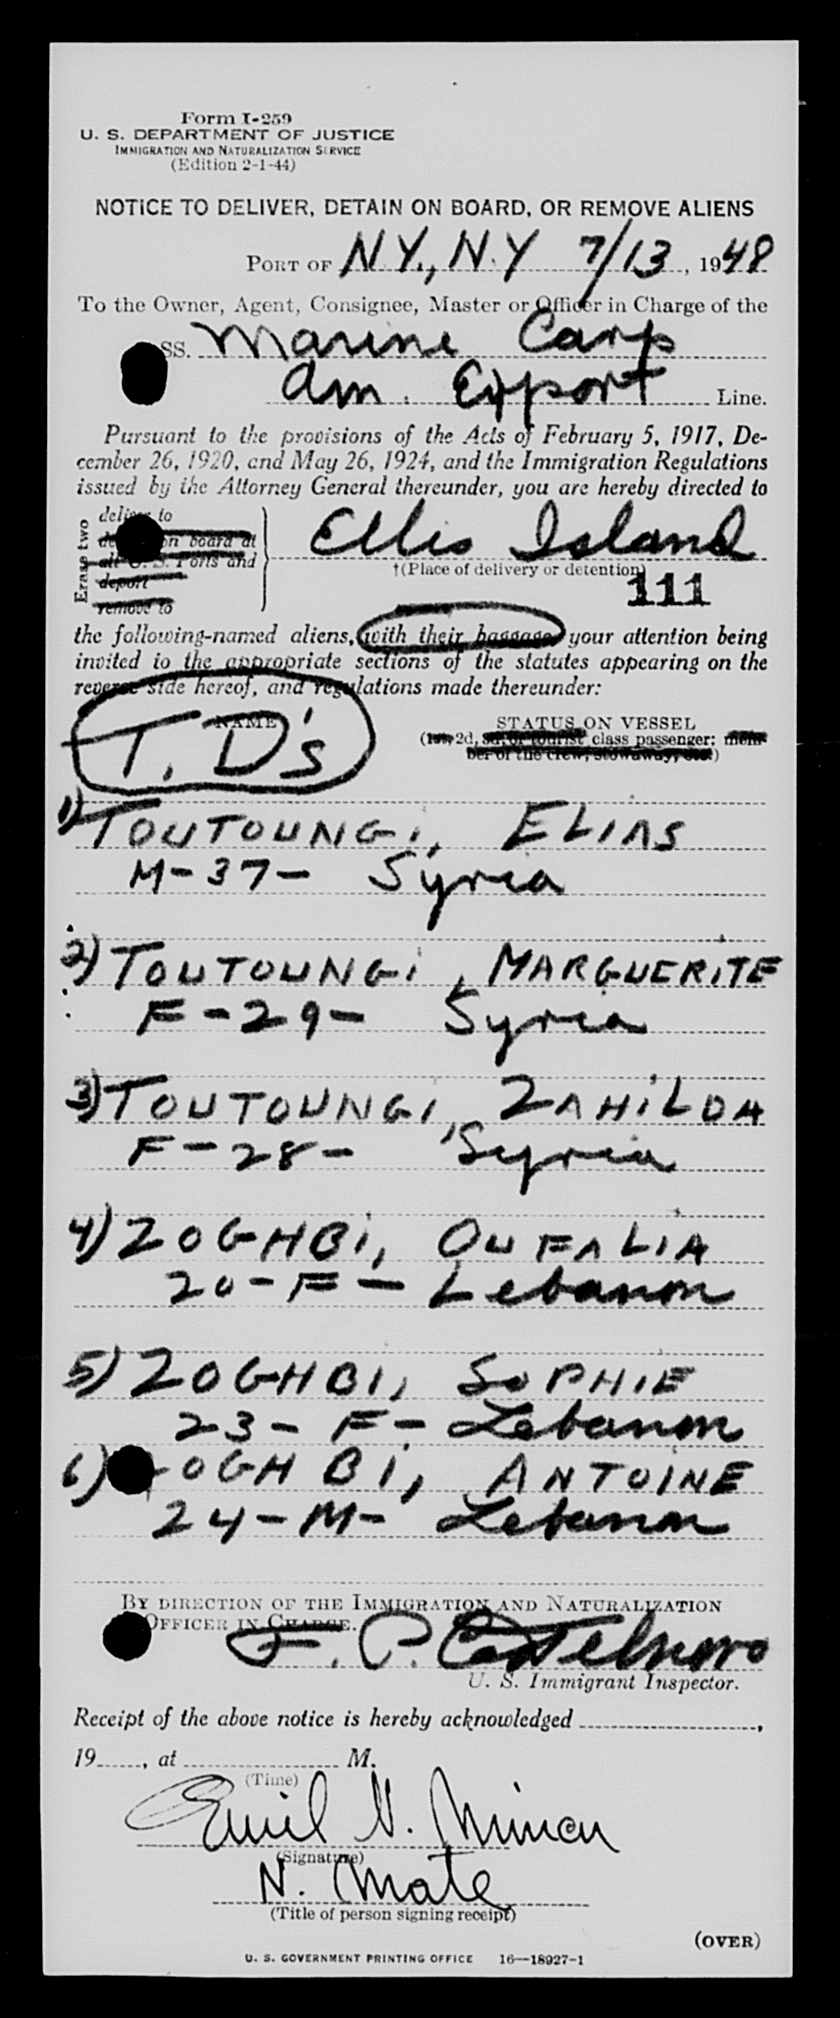 Form I-259
U. S. DEPARTMENT OF JUSTICE
IMMIGRATION AND NATURALIZATION SERVICE
(Edition 2-1-44)
NOTICE TO DELIVER, DETAIN ON BOARD, OR REMOVE ALIENS
PORT OF N.Y., N.Y 7/13, 1948
To the Owner, Agent, Consignee, Master or Officer in Charge of the
SS. Marine Carp
Am. Export Line.
Pursuant to the provisions of the Acts of February 5, 1917, De-
cember 26, 1920, and May 26, 1924, and the Immigration Regulations
issued by the Attorney General thereunder, you are hereby directed to
Erase two
deliver to
on board at
all U. S. Ports and
deport
remove to
Ellis Island
†(Place of delivery or detention)
111
the following-named aliens, with their baggage, your attention being
invited to the appropriate sections of the statutes appearing on the
reverse side hereof, and regulations made thereunder:
NAME
T. D's
STATUS ON VESSEL
(1st, 2d, 3d, or tourist class passenger; mem-
ber of the crew, stowaway, etc.)
1) TOUTOUNGi, ELIAS
M-37- Syria
2) TOUTOUNGi, MARGUERITE
F-29- Syria
3) TOUTOUNGI, ZAHILDA
F-28- Syria
4) ZOGHBi, OUFALIA
20-F- Lebanon
5) ZOGHBI, SOPHIE
23-F- Lebanon
6) ZOGHBI, ANTOINE
24-M- Lebanon
BY DIRECTION OF THE IMMIGRATION AND NATURALIZATION
OFFICER IN CHARGE.
F. P. Castelnovo
U. S. Immigrant Inspector.
Receipt of the above notice is hereby acknowledged ,
19 , at M.
(Time)
Emil N.
(Signature)
N. Mate
(Title of person signing receipt)
(OVER)
U. S. GOVERNMENT PRINTING OFFICE 16—18927-1